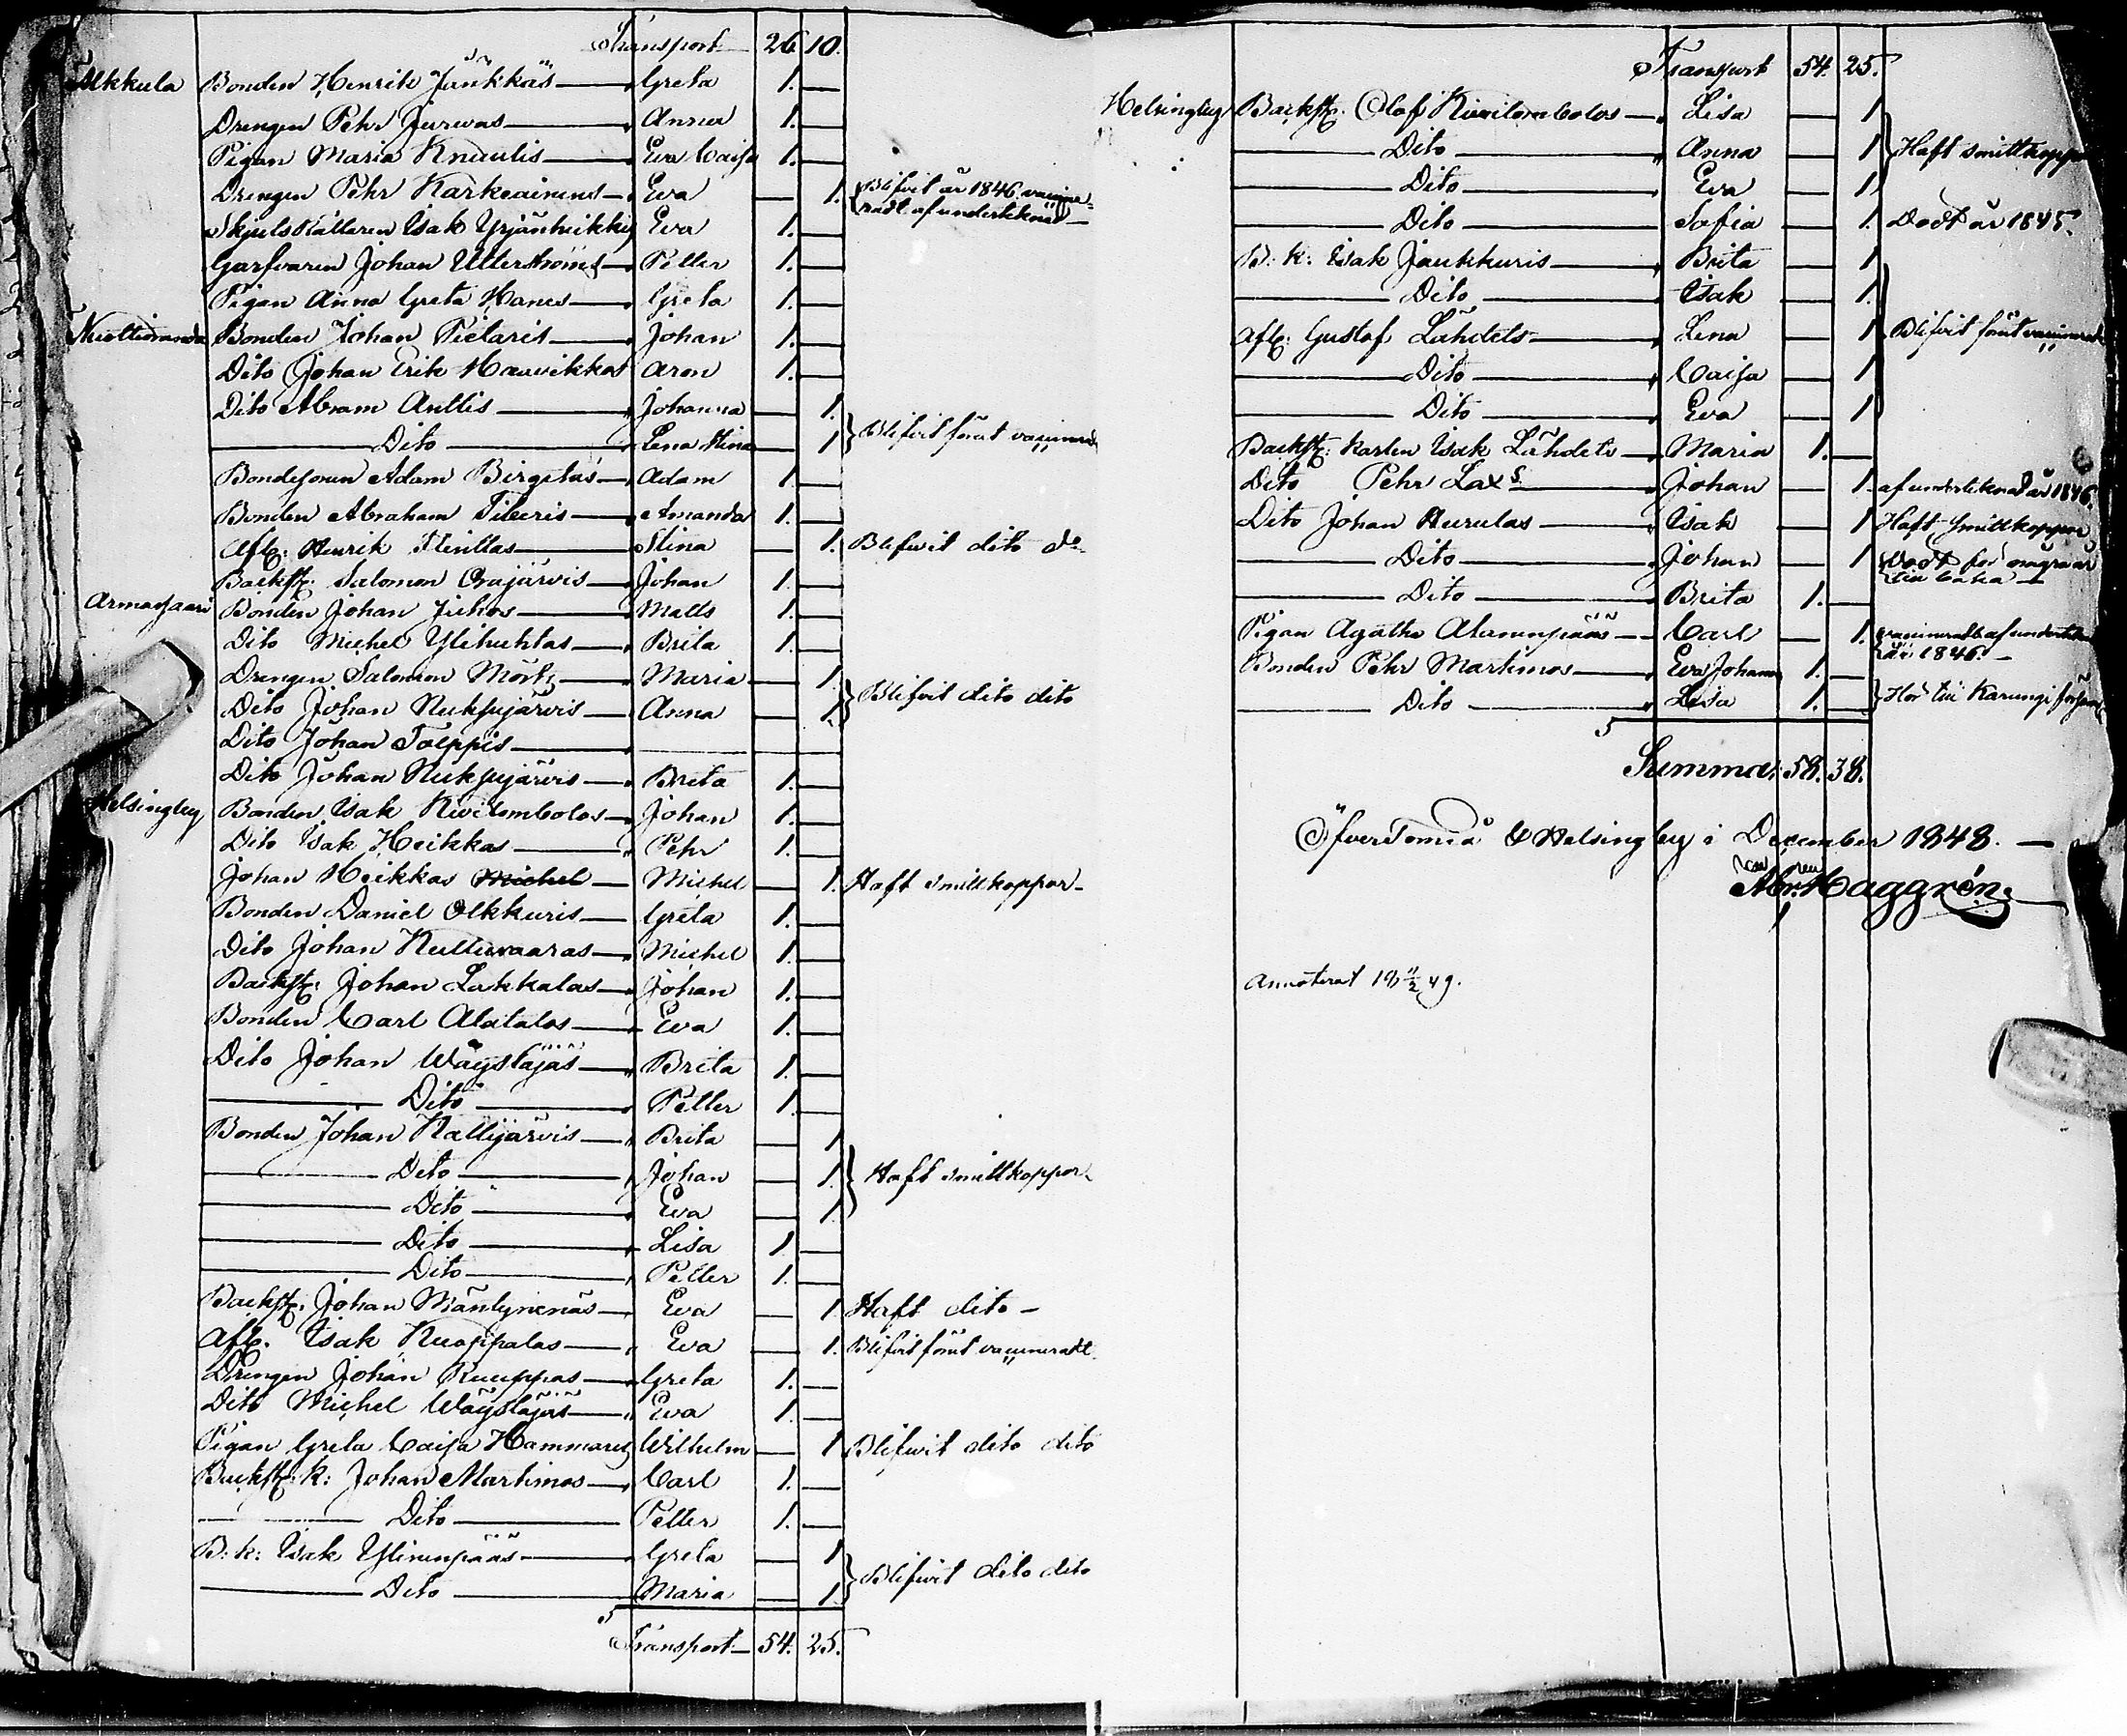 Transport 26 10.
Alkkula Bonden Henrik Junkkas Greta 1. —
Drengen Pehr Jurwas Anna 1. —
Pigan Maria Knuutis Eva Caisa 1. —
Drengen Pehr Karkeainens Eva — 1. Blifvit år 1846 vaccine-
radt af underteknad
Skjutsrättaren Isak Yrjänheikkis Eva 1. —
Garfvaren Johan Utterströms Petter 1. —
Pigan Anna Greta Hanes Greta 1. —
Nuottioranda Bonden Johan Pietaris Johan 1. —
Dito Johan Erik Haavikkos Aron 1. —
Dito Abram Anttis Johanna — 1.
Dito Lena Stina — 1 Blifvit förut vaccinerad
Bondesonen Adam Birgetas Adam 1 —
Bonden Abraham Tiberis Amanda 1. —
Afl: Henrik Stina — 1. Blefwit dito do
Backst: Salomon Orajärvis Johan 1. —
Armasjaari Bonden Johan Juhos Matts 1. —
Dito Michel Ylihuhtas Brita 1. —
Drengen Salomon Mört Maria — 1
Dito Johan Ruksujärvis Anna — 1. Blifvit dito dito
Dito Johan Toeppis
Dito Johan Ruksujärvis Brita 1. —
Helsingby Bonden Isak Kivilombolos Johan 1. —
Dito Isak Heikkas Pehr 1. —
Johan Heikkas Michel Michel — 1. Haft smittkoppor
Bonden Daniel Olkkuris Greta 1. —
Dito Johan Kultivaaras Michel 1. —
Backst: Johan Lakkalas Johan 1. —
Bonden Carl Alatalos Eva 1. —
Dito Johan Wäystäjäs Brita 1. —
Dito Petter 1. —
Bonden Johan Kallijärvis Brita — 1
Dito Johan — 1. Haft smittkoppor
Dito Eva — 1.
Dito Lisa 1 —
Dito Petter 1. —
Backst: Johan Mäntynenäs Eva — 1 Haft dito —
Afl: Isak Kuoppalas Eva — 1. Blifvit förut vaccineradt
Drengen Johan Ruuppas Greta 1. —
Dito Michel Wäystäjäs Eva 1. —
Pigan Greta Caisa Hammares Wilhelm — 1 Blifwit dito dito
Backst: k: Johan Martimos Carl 1. —
Dito Petter 1. —
B: k: Isak Ylinenpääs Greta — 1
Dito Maria — 1. Blifvit dito dito
Transport 54. 25.
Transport 54. 25.
Helsingby Backst: Olof Kivilombolos Lisa — 1
Dito Anna — 1 Haft smittkoppor
Dito Eva — 1
Dito Sofia — 1. Dödt år 1845.
B: k: Isak Jaukkuris Brita — 1
Dito Isak — 1.
Afl: Gustaf Lähdets Lena — 1 Blifvit förut vaccinerad
Dito Caisa — 1
Dito Eva — 1
Backst: karlen Isak Lähdets Maria 1. —
Dito Pehr Lax s Johan — 1. af underteknad år 1846.
Dito Johan Hurulas Isak — 1 Haft smittkoppor
Dito Johan — 1 Dödt för några år
tilbaka —
Dito Brita 1. —
Pigan Agatha Alanenpääs Carl — 1. vaccineradt af underteknad
år 1846. —
Bonden Pehr Martimos Eva Johanna 1. —
Dito Lisa 1. — Hör till Karungi församl
Summa: 58. 38.
Öfvertorneå & Helsingby i December 1848. —
Abr. Haggrén.
Annoterat 18 11/2 49.